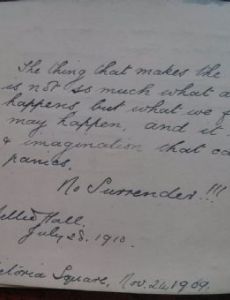 The thing that makes the
is not so much what
happens but what we
may happen, and it
& imagination that
panics.
No Surrender!!!
Nellie Hall.
July 28. 1910.
Victoria Square, Nov. 24, 1909.